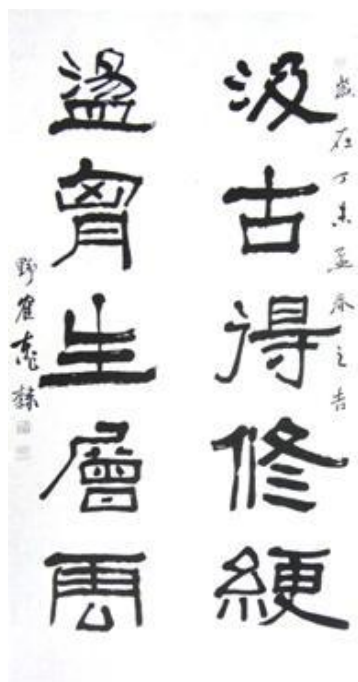 歲在丁未孟春之吉
汲古得修綆
盪胷生層雲
野隸